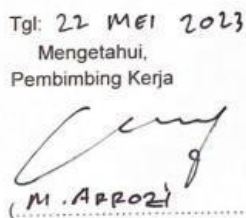 Tgl: 22 MEI 2023
Mengetahui,
Pembimbing Kerja
(M. ARROZI